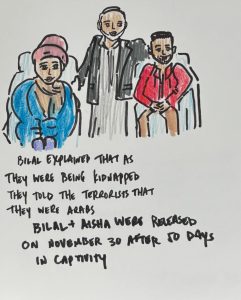 BILAL EXPLAINED THAT AS
THEY WERE BEING KIDNAPPED
THEY TOLD THE TERRORISTS THAT
THEY WERE ARABS
BILAL + AISHA WERE RELEASED
ON NOVEMBER 30 AFTER 50 DAYS
IN CAPTIVITY